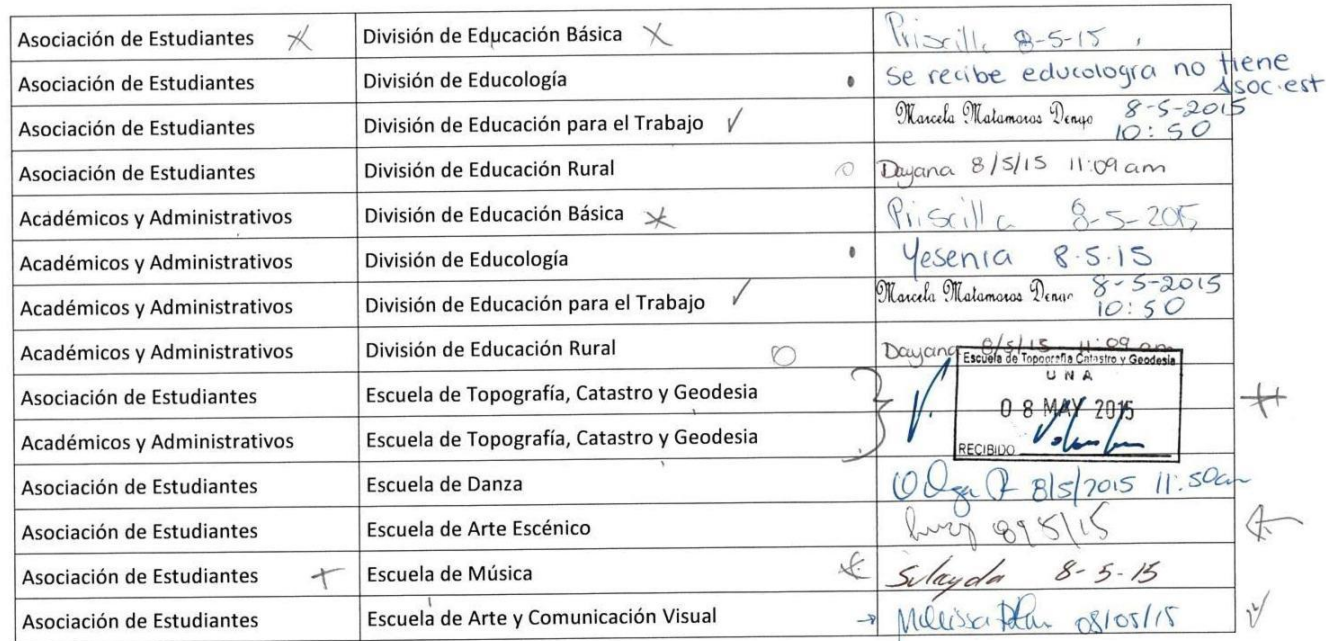 Asociación de Estudiantes División de Educación Básica Priscilla 8-5-15
Asociación de Estudiantes División de Educología Se recibe educologra no tiene
Asoc.est
Asociación de Estudiantes División de Educación para el Trabajo Marcela Matamoros Dengo 8-5-2015
10:50
Asociación de Estudiantes División de Educación Rural Dayana 8/5/15 11:09 am
Académicos y Administrativos División de Educación Básica Priscilla 8-5-2015
Académicos y Administrativos División de Educología Yesenia 8.5.15
Académicos y Administrativos División de Educación para el Trabajo Marcela Matamoros Dengo 8-5-2015
10:50
Académicos y Administrativos División de Educación Rural Dayana 8/5/15 11:09 am
Escuela de Topografía Catastro y Geodesia
UNA
Asociación de Estudiantes Escuela de Topografía, Catastro y Geodesia 08 MAY 2015
Académicos y Administrativos Escuela de Topografía, Catastro y Geodesia RECIBIDO
Asociación de Estudiantes Escuela de Danza Olga 8/5/2015 11:50am
Asociación de Estudiantes Escuela de Arte Escénico
Asociación de Estudiantes Escuela de Música 8-5-15
Asociación de Estudiantes Escuela de Arte y Comunicación Visual Melissa 08/05/15